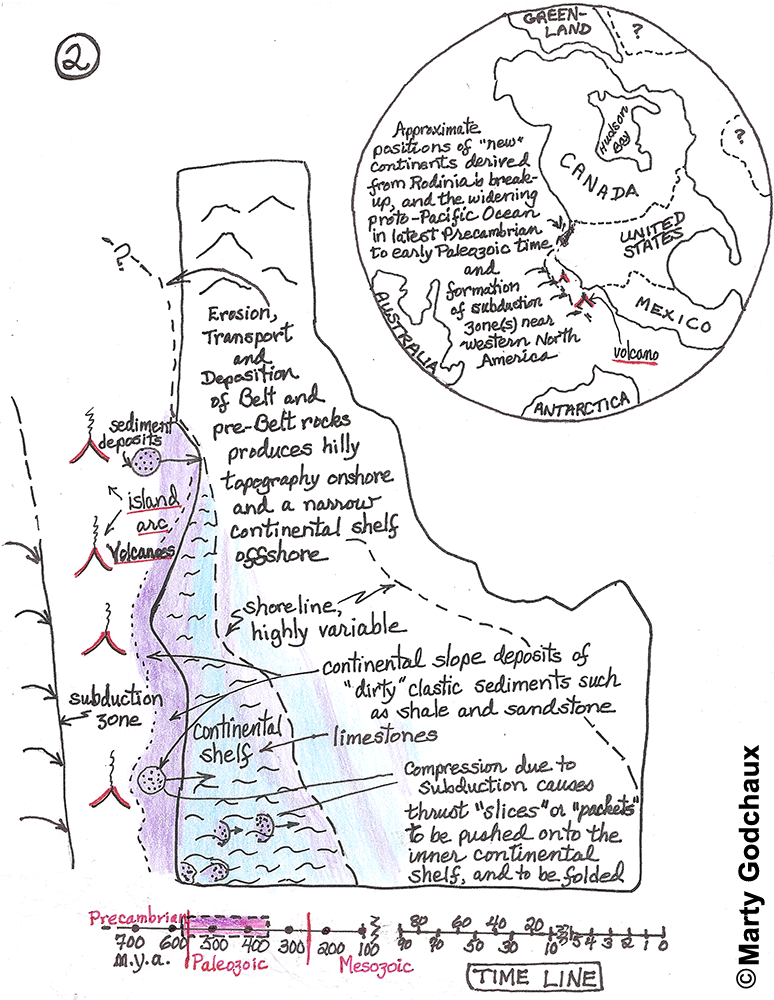 2
GREEN-
LAND
?
?
Hudson
Bay
CANADA
UNITED
STATES
MEXICO
AUSTRALIA
ANTARCTICA
volcano
Approximate
positions of "new"
continents derived
from Rodinia's break-
up, and the widening
proto-Pacific Ocean
in latest Precambrian
to early Paleozoic time
and
formation
of subduction
zone(s) near
western North
America
?
Erosion,
Transport
and
Deposition
of Belt and
pre-Belt rocks
produces hilly
topography onshore
and a narrow
continental shelf
offshore
sediment
deposits
island
arc
Volcanoes
shoreline,
highly variable
continental slope deposits of
"dirty" clastic sediments such
as shale and sandstone
subduction
zone
continental
shelf
limestones
Compression due to
subduction causes
thrust "slices" or "packets"
to be pushed onto the
inner continental
shelf, and to be folded
Precambrian
700 600 500 400 300 200 100
m.y.a.
Paleozoic
Mesozoic
80 60 40 20
90 70 50 30 10 5 4 3 2 1 0
TIME LINE
©Marty Godchaux